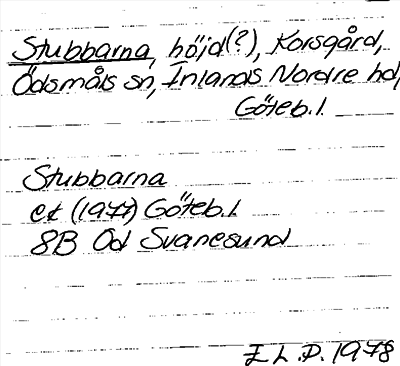 Stubbarna, höjd(?), Korsgård,
Ödsmåls sn, Inlands Nordre hd,
Göteb. l.
Stubbarna
ek (1977) Göteb. l
8B Od Svanesund
1978